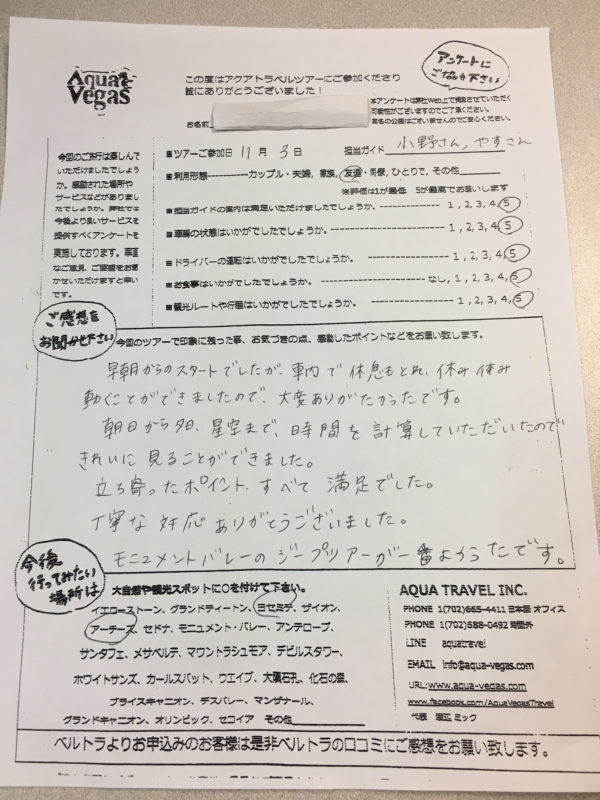 Aqua
Vegas
この度はアクアトラベルツアーにご参加くださり
誠にありがとうございました！
アンケートに
ご協力下さい
本アンケートは弊社Web上で掲載させていただく
可能性がありますのでご了承ください。
実名の公開はございませんのでご安心ください。
お名前
■ツアーご参加日 11 月 3 日 担当ガイド 小野さん, やすさん
■利用形態----------カップル・夫婦, 家族, 友達・同僚, ひとりで, その他
※評価は1が最低 5が最高でお願いします
■担当ガイドの案内は満足いただけましたでしょうか。---------------- 1, 2, 3, 4, 5
■車輌の状態はいかがでしたでしょうか。---------------- 1, 2, 3, 4, 5
■ドライバーの運転はいかがでしたでしょうか。---------------- 1, 2, 3, 4, 5
■お食事はいかがでしたでしょうか。---------------- なし, 1, 2, 3, 4, 5
■観光ルートや行程はいかがでしたでしょうか。---------------- 1, 2, 3, 4, 5
今回のご旅行は楽しんで
いただけましたでしょう
か。感動された場所や
サービスなどがありまし
たでしょうか。弊社では
今後より良いサービスを
提供すべくアンケートを
実施しております。率直
なご意見、ご要望をお聞
かせいただけますと幸い
です。
ご感想を
お聞かせ下さい
今回のツアーで印象に残った事、お気づきの点、感動したポイントなどをお願い致します。
早朝からのスタートでしたが、車内で休息もとれ、休み休み
動くことができましたので、大変ありがたかったです。
朝日から夕日、星空まで、時間を計算していただいたので
きれいに見ることができました。
立ち寄ったポイント、すべて満足でした。
丁寧な対応ありがとうございました。
モニュメントバレーのジープツアーが一番よかったです。
今後
行ってみたい
場所は
大自然や観光スポットに○を付けて下さい。
イエローストーン、グランドティートン、ヨセミテ、ザイオン、
アーチーズ、セドナ、モニュメント・バレー、アンテロープ、
サンタフェ、メサベルデ、マウントラシュモア、デビルスタワー、
ホワイトサンズ、カールスバット、ウエイブ、大隕石孔、化石の森、
ブライスキャニオン、デスバレー、マンザナール、
グランドキャニオン、オリンピック、セコイア その他
AQUA TRAVEL INC.
PHONE 1(702)665-4411 日本語 オフィス
PHONE 1(702)588-0492 時間外
LINE aquatravel
EMAIL info@aqua-vegas.com
URL: www.aqua-vegas.com
www.facebook.com/AquaVegasTravel
代表 渡辺 ミック
ベルトラよりお申込みのお客様は是非ベルトラの口コミにご感想をお願い致します。